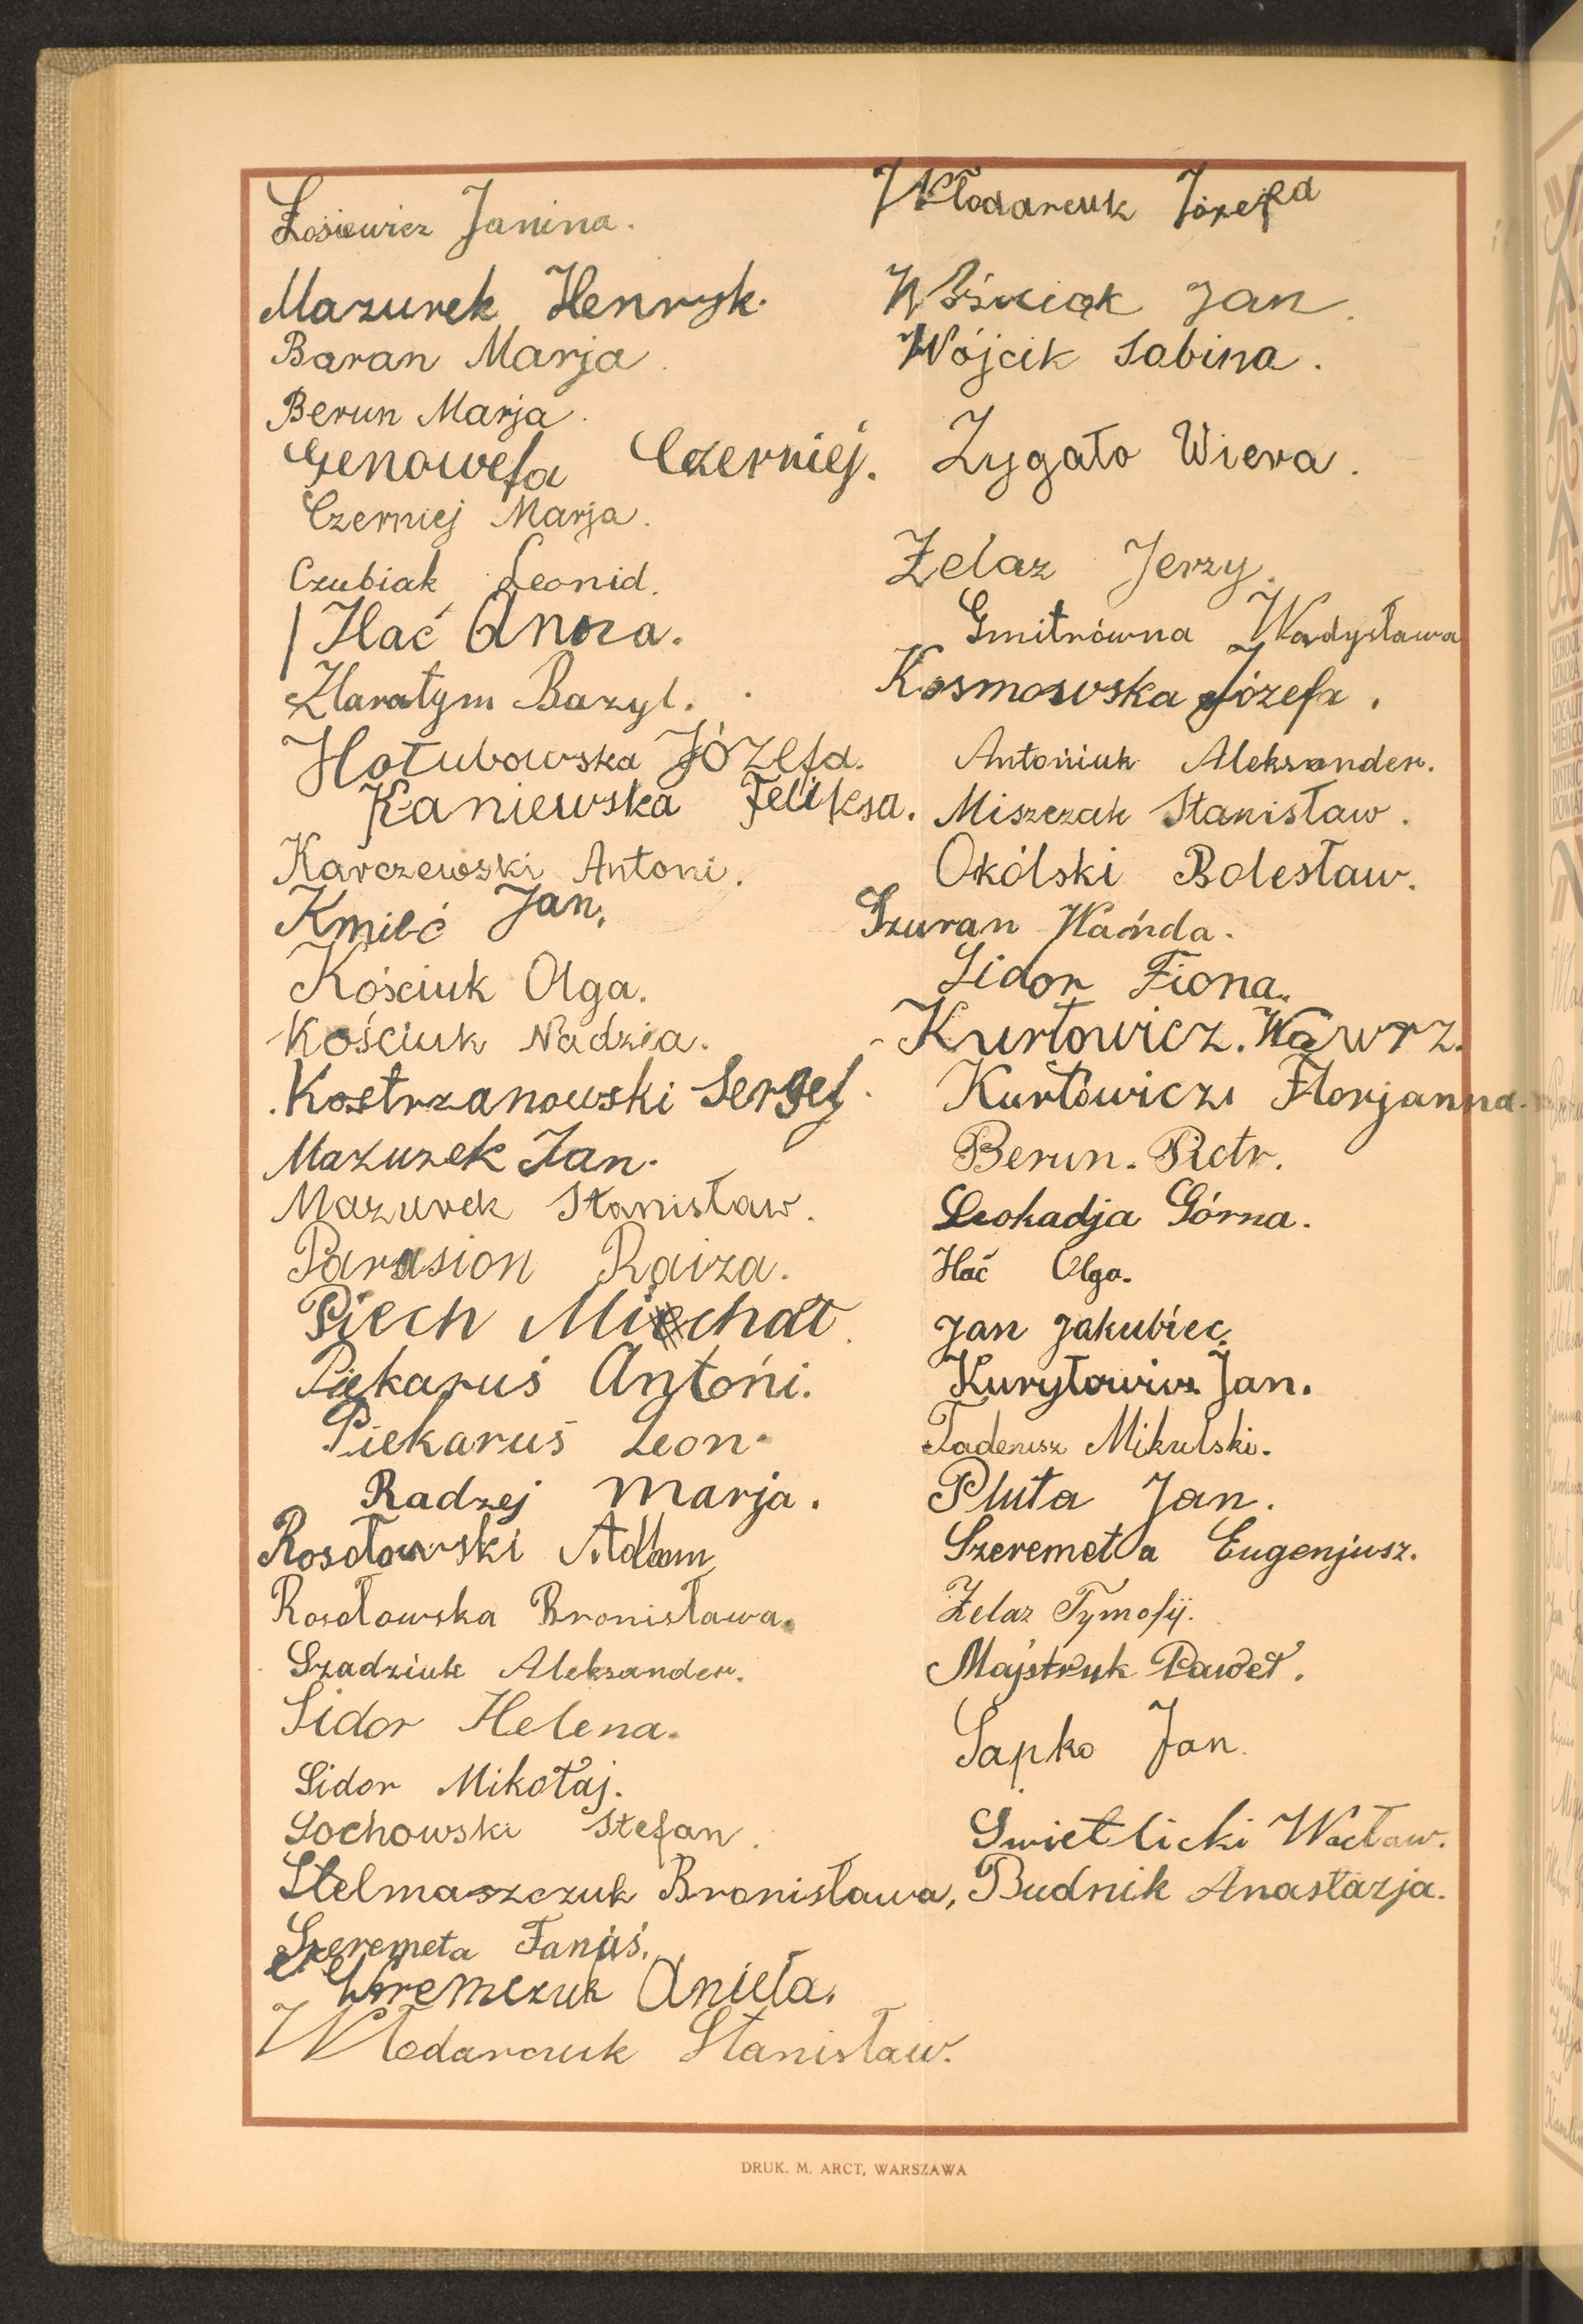 Łosiewicz Janina.
Mazurek Henryk.
Baran Marja.
Berun Marja.
Genowefa Czerniej.
Czerniej Marja.
Czubiak Leonid.
Hać Anna.
Haratym Bazyl.
Hołubowska Józefa.
Kaniewska Feliksa.
Karczewski Antoni.
Kmieć Jan.
Kościuk Olga.
Kościuk Nadzia.
Kostrzanowski Sergej.
Mazurek Jan.
Mazurek Stanisław.
Parasion Raiza.
Piech Michał.
Piekaruś Antoni.
Piekaruś Leon.
Radzej Marja.
Rosołowski Adam
Rosołowska Bronisława.
Szadziuk Aleksander.
Sidor Helena.
Sidor Mikołaj.
Sochowski Stefan.
Stelmaszczuk Bronisława,
Szeremeta Fanaś.
Weremczuk Aniela.
Włodarczuk Stanisław.
Włodarczuk Józefa
Woźniak Jan.
Wójcik Sabina.
Zygało Wiera.
Żelaz Jerzy.
Gmitrówna Władysława
Kosmowska Józefa.
Antoniuk Aleksander.
Miszczak Stanisław.
Okólski Bolesław.
Szuran Wanda.
Sidor Fiona.
Kurłowicz. Wawrz.
Kurłowicz Florjanna.
Berun. Piotr.
Leokadja Górna.
Hać Olga.
Jan Jakubiec.
Kuryłowicz Jan.
Tadeusz Mikulski.
Pluta Jan.
Szeremeta Eugenjusz.
Żelaz Tymofij.
Majstruk Paweł.
Sapko Jan.
Swietlicki Wacław.
Budnik Anastazja.
DRUK. M. ARCT, WARSZAWA